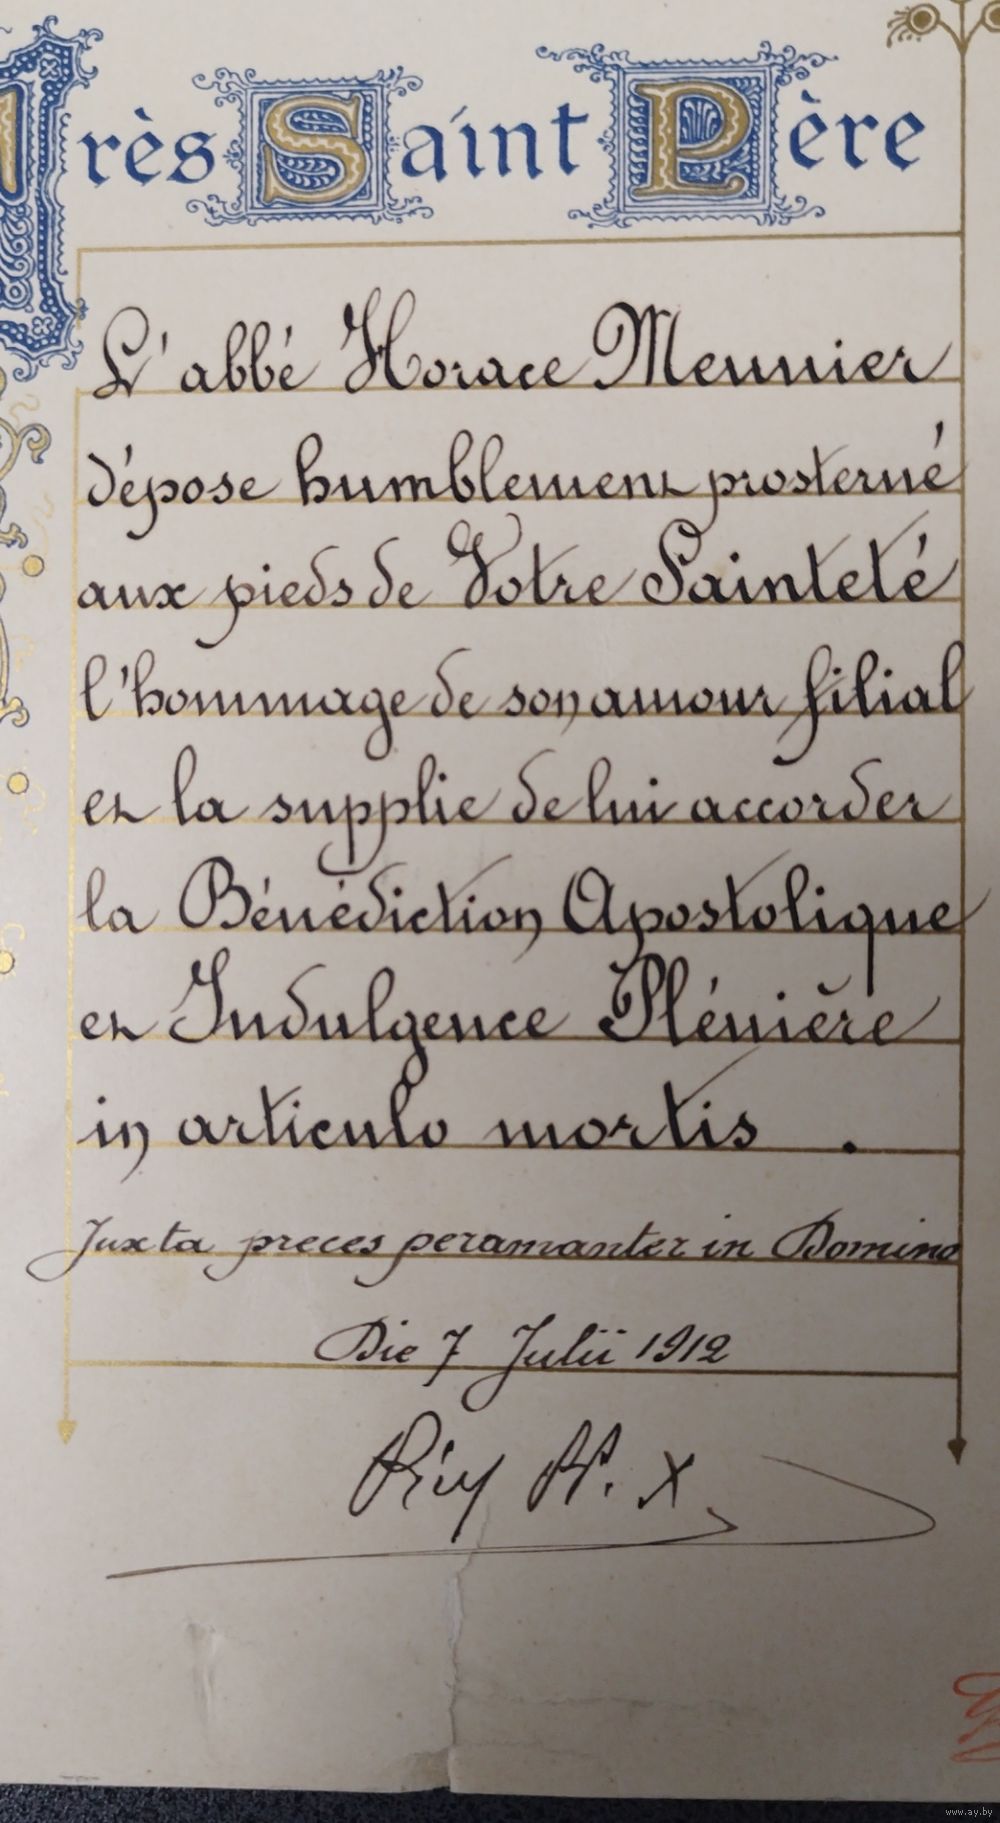 Très Saint Père
L'abbé Horace Meunier
dépose humblement prosterné
aux pieds de Votre Sainteté
l'hommage de son amour filial
et la supplie de lui accorder
la Bénédiction Apostolique
et Indulgence Plénière
in articulo mortis .
Juxta preces peramanter in Domino
Die 7 Julii 1912
Pius PP. X
www.ay.by